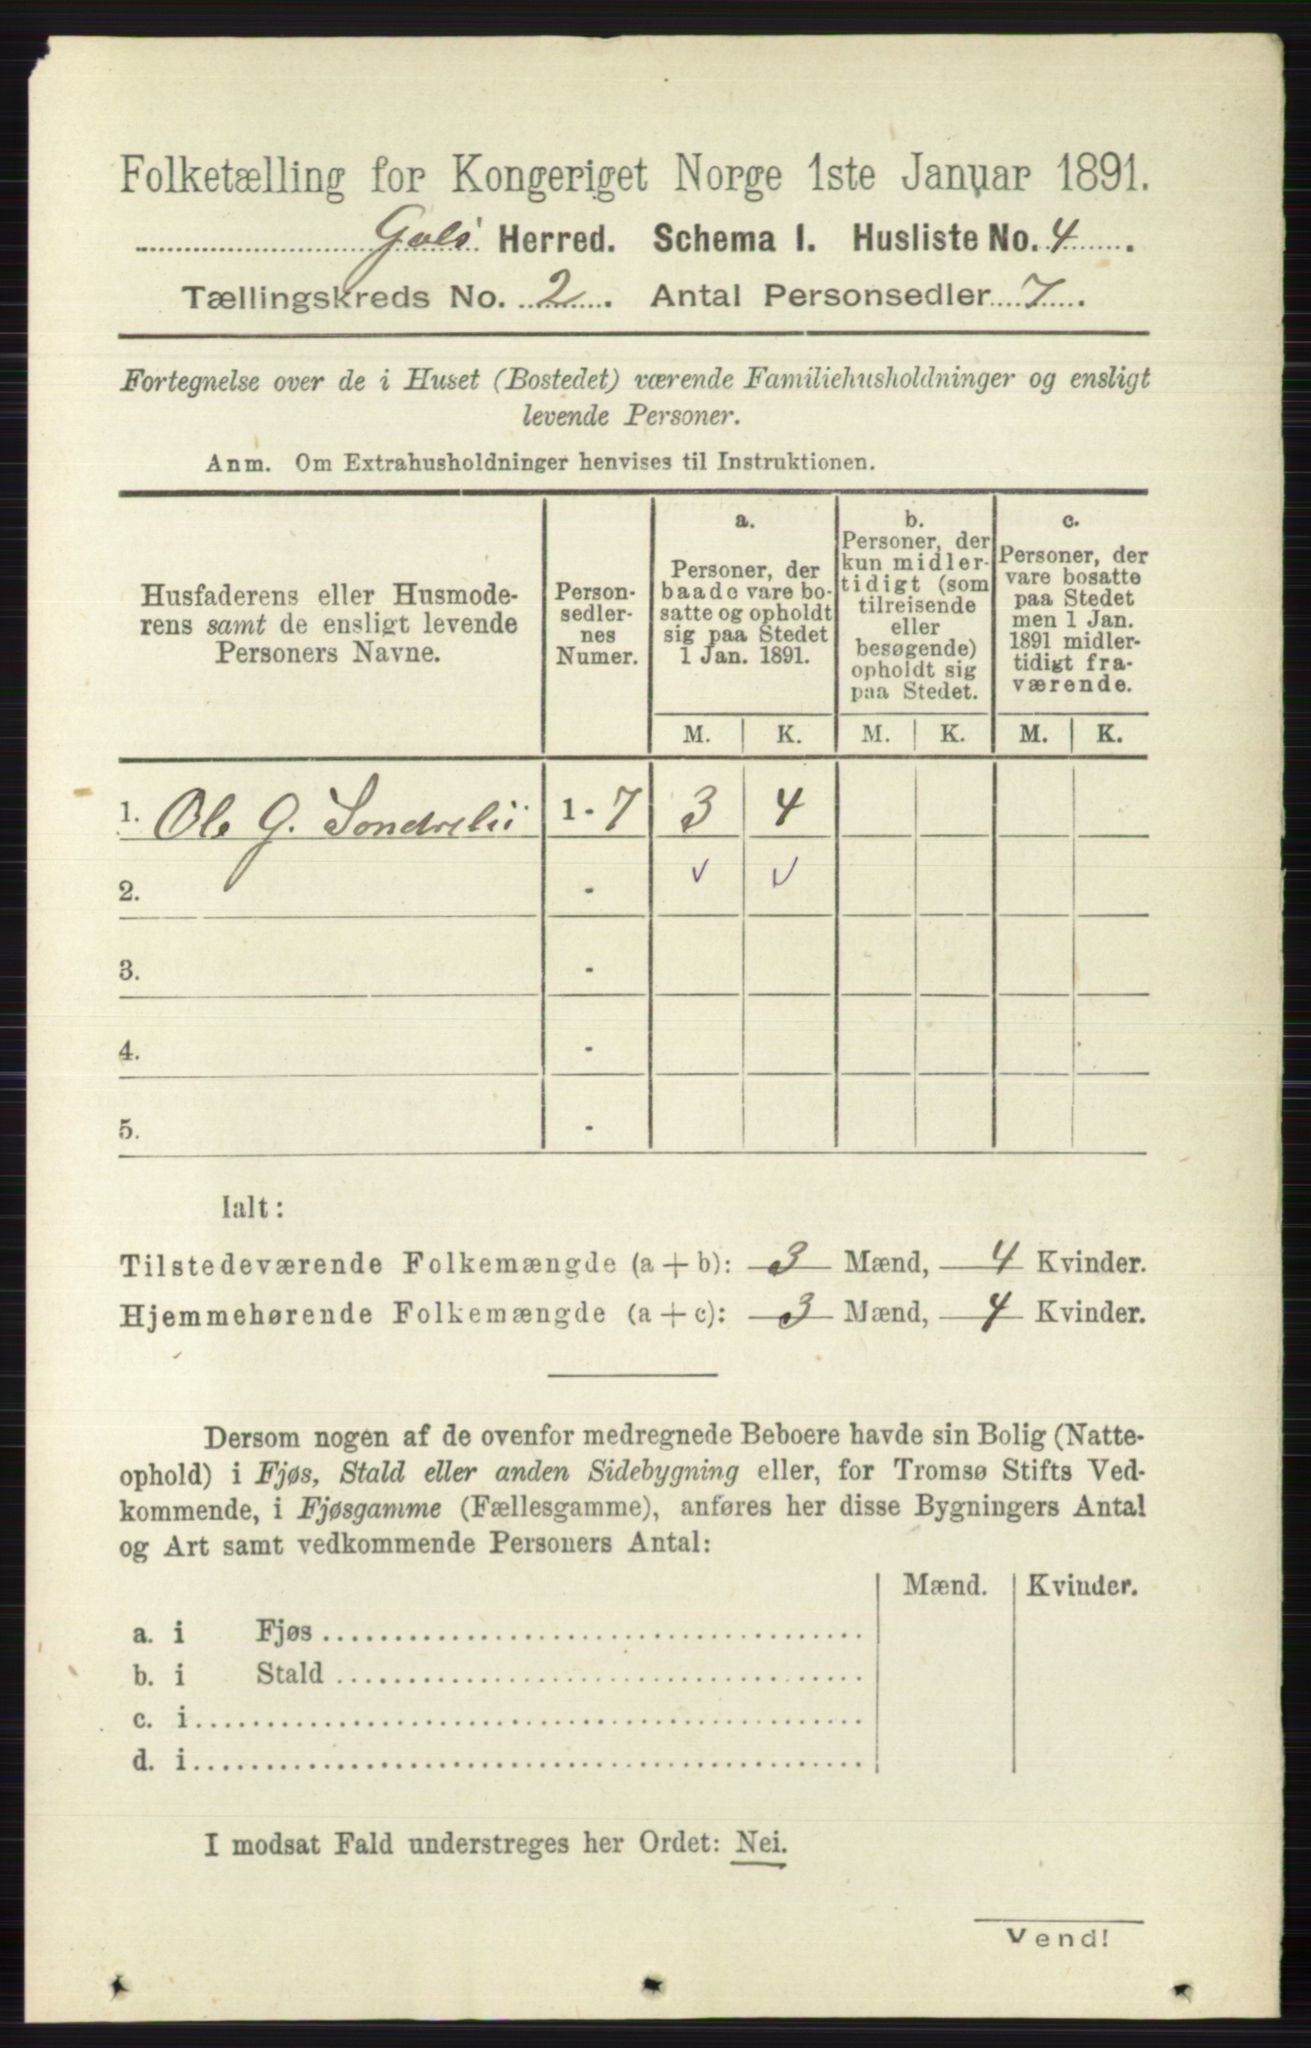 Folketælling for Kongeriget Norge 1ste Januar 1891.
Gols Herred. Schema I. Husliste No. 4.
Tællingskreds No. 2. Antal Personsedler 7.
Fortegnelse over de i Huset (Bostedet) værende Familiehusholdninger og ensligt
levende Personer.
Anm. Om Extrahusholdninger henvises til Instruktionen.
Husfaderens eller Husmode-
rens samt de ensligt levende
Personers Navne.
Person-
sedler-
nes
Numer.
a.
Personer, der
baade vare bo-
satte og opholdt
sig paa Stedet
1 Jan. 1891.
b.
Personer, der
kun midler-
tidigt (som
tilreisende
eller
besøgende)
opholdt sig
paa Stedet.
c.
Personer, der
vare bosatte
paa Stedet
men 1 Jan.
1891 midler-
tidigt fra-
værende.
M. K. M. K. M. K.
1. Ole G. Sondrelii 1 - 7 3 4
2. - ✓ ✓
3. -
4. -
5. -
Ialt:
Tilstedeværende Folkemængde (a + b): 3 Mænd, 4 Kvinder.
Hjemmehørende Folkemængde (a + c): 3 Mænd, 4 Kvinder.
Dersom nogen af de ovenfor medregnede Beboere havde sin Bolig (Natte-
ophold) i Fjøs, Stald eller anden Sidebygning eller, for Tromsø Stifts Ved-
kommende, i Fjøsgamme (Fællesgamme), anføres her disse Bygningers Antal
og Art samt vedkommende Personers Antal:
Mænd. Kvinder.
a. i Fjøs
b. i Stald
c. i
d. i
I modsat Fald understreges her Ordet: Nei.
Vend!